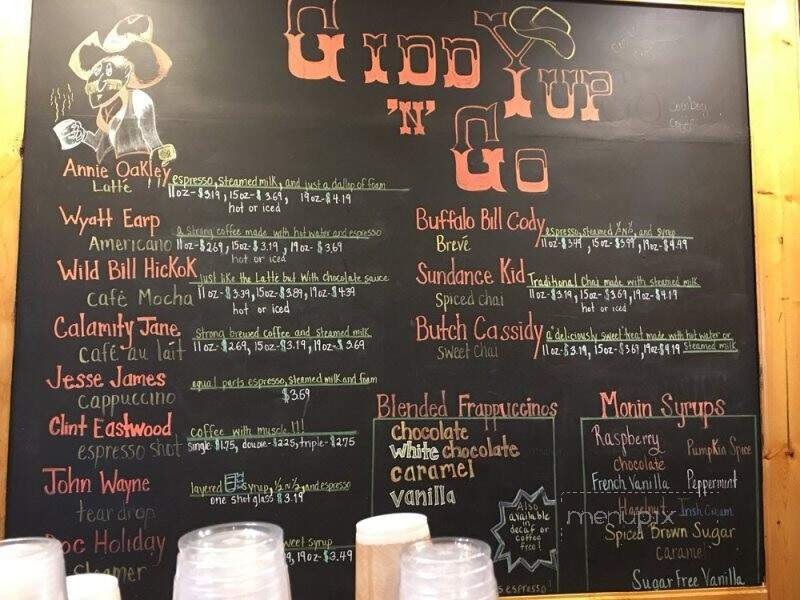 Giddy Up
'N'
Go
Cowboy
Coffee
Annie Oakley espresso, steamed milk, and just a dallop of foam
Latte !!! 11oz-$3.19, 15oz-$3.69, 19oz-$4.19
hot or iced
Wyatt Earp a strong coffee made with hot water and espresso
Americano 11oz-$2.69, 15oz-$3.19, 19oz-$3.69
hot or iced
Wild Bill Hickok just like the Latte but with chocolate sauce
café Mocha 11oz-$3.39, 15oz-$3.89, 19oz-$4.39
hot or iced
Calamity Jane strong brewed coffee and steamed milk
café au lait 11oz-$2.69, 15oz-$3.19, 19oz-$3.69
Jesse James equal parts espresso, steamed milk and foam
cappuccino $3.69
Clint Eastwood coffee with muscle!!!
espresso shot single-$1.75, double-$2.25, triple-$2.75
John Wayne layered syrup, ½ N ½, and espresso
tear drop one shot glass $3.19
Doc Holiday sweet syrup
Steamer 19oz-$3.49
Buffalo Bill Cody espresso, steamed ½N½, and syrup
Brevé 11oz-$3.49, 15oz-$3.99, 19oz-$4.49
Sundance Kid Traditional Chai made with steamed milk
spiced chai 11oz-$3.19, 15oz-$3.69, 19oz-$4.19
hot or iced
Butch Cassidy a "deliciously sweet" treat made with hot water or
sweet chai 11oz-$3.19, 15oz-$3.69, 19oz-$4.19 steamed milk
Blended Frappuccinos
chocolate
white chocolate
caramel
vanilla
Also
available
in
decaf or
coffee
free!
espresso!
Monin Syrups
Raspberry Pumpkin Spice
chocolate
French Vanilla Peppermint
Hazelnut Irish Cream
Spiced Brown Sugar
caramel
Sugar Free Vanilla
menupix